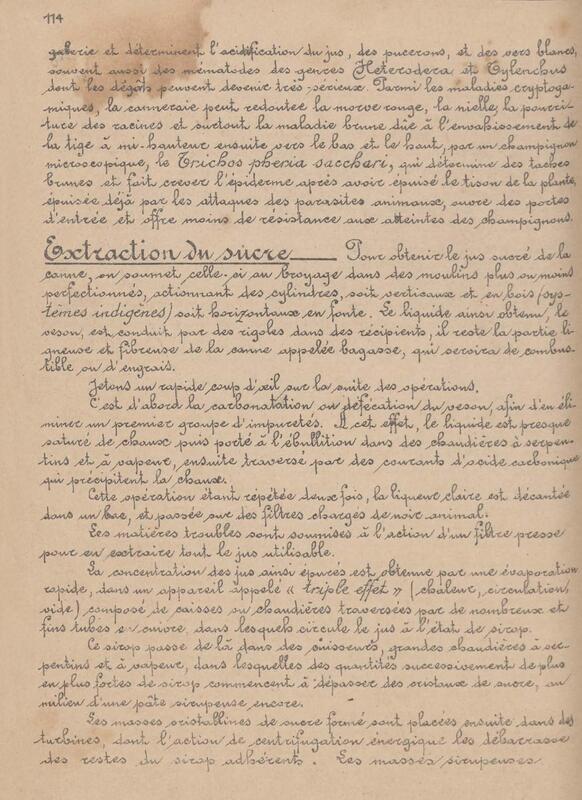 114
galerie et déterminent l'acidification du jus, des pucerons, et des vers blancs,
souvent aussi des nématodes des genres Heterodera et Tylenchus
dont les dégâts peuvent devenir très sérieux. Parmi les maladies cryptoga-
miques, la canneraie peut redoutée la morve rouge, la nielle, la pourri-
ture des racines et surtout la maladie brune dûe à l'envahissement de
la tige à mi-hauteur ensuite vers le bas et le haut, par un champignon
microscopique, le Trichos pheria sacchari, qui détermine des taches
brunes et fait crever l'épiderme après avoir épuisé le tison de la plante,
épuisée déjà par les attaques des parasites animaux, ouvre des portes
d'entrée et offre moins de résistance aux atteintes des champignons.
Extraction du sucre Pour obtenir le jus sucré de la
canne, on soumet celle-ci au broyage dans des moulins plus ou moins
perfectionnés, actionnant des cylindres, soit verticaux et en bois (sys-
tèmes indigènes) soit horizontaux en fonte. Le liquide ainsi obtenu, le
veson, est conduit par des rigoles dans des récipients, il reste la partie li-
gneuse et fibreuse de la canne appelée bagasse, qui servira de combus-
tible ou d'engrais.
Jetons un rapide coup d'œil sur la suite des opérations.
C'est d'abord la carbonatation ou défécation du veson, afin d'en éli-
miner un premier groupe d'impuretés. A cet effet, le liquide est presque
saturé de chaux puis porté à l'ébullition dans des chaudières à serpen-
tins et à vapeur, ensuite traversé par des courants d'acide carbonique
qui précipitent la chaux.
Cette opération étant répétée deux fois, la liqueur claire est décantée
dans un bac, et passée sur des filtres chargés de noir animal.
Les matières troubles sont soumises à l'action d'un filtre presse
pour en extraire tout le jus utilisable.
La concentration des jus ainsi épurés est obtenue par une évaporation
rapide, dans un appareil appelé « triple effet » (chaleur, circulation,
vide) composé de caisses ou chaudières traversées par de nombreux et
fins tubes e cuivre, dans lesquels circule le jus à l'état de sirop.
Ce sirop passe de là dans des cuisseurs, grandes chaudières à ser-
pentins et à vapeur, dans lesquelles des quantités successivement de plus
en plus fortes de sirop commencent à dépasser des cristaux de sucre, au
milieu d'une pâte sirupeuse encore.
Les masses cristallines de sucre formé sont placées ensuite dans des
turbines, dont l'action de centrifugation énergique les débarrasse
des restes du sirop adhérent. Les masses sirupeuses